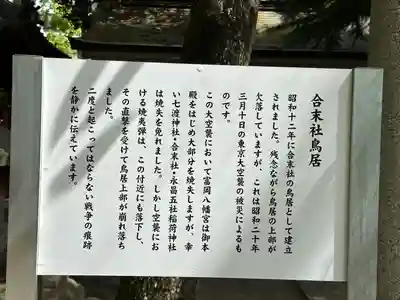 合末社鳥居
昭和十二年に合末社の鳥居として建立
されました。残念ながら鳥居の上部が
欠落していますが、これは昭和二十年
三月十日の東京大空襲の被災によるも
のです。
この大空襲において富岡八幡宮は御本
殿をはじめ大部分を焼失しますが、幸
い七渡神社・合末社・永昌五社稲荷神社
は焼失を免れました。しかし空襲にお
ける焼夷弾は、この付近にも落下し、
その直撃を受けて鳥居上部が崩れ落ち
ました。
二度と起こってはならない戦争の痕跡
を静かに伝えています。